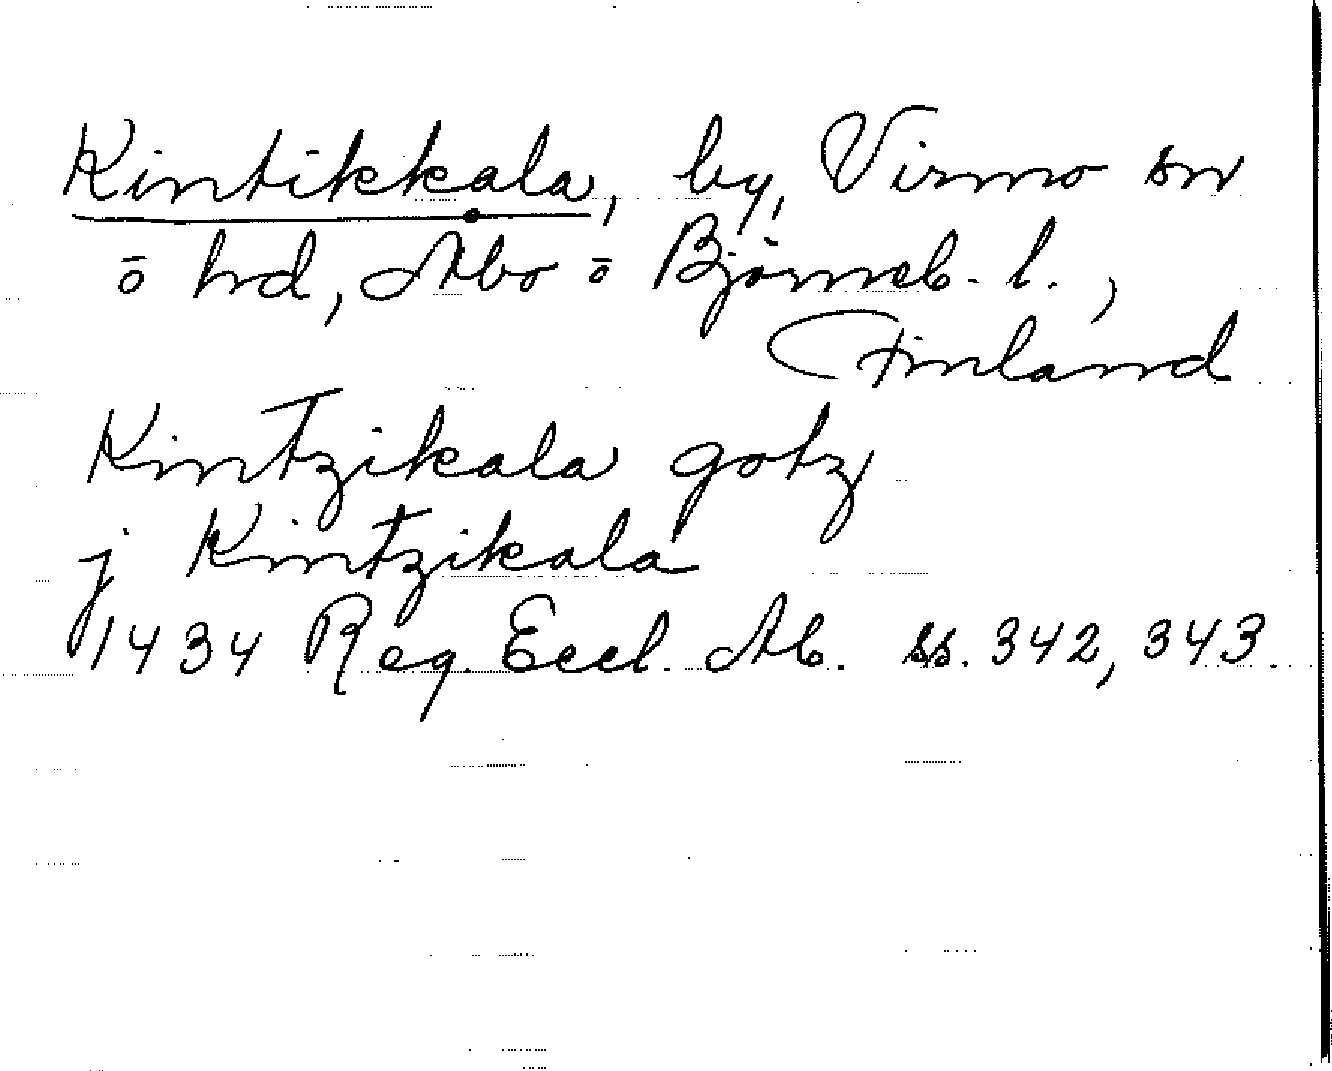 Kintikkala, by, Virmo sn
ō hd, Åbo ō Björneb. l.,
Finland
Kintzikala gotz
j Kintzikala
1434 Reg. Eccl. Ab. ss. 342, 343.